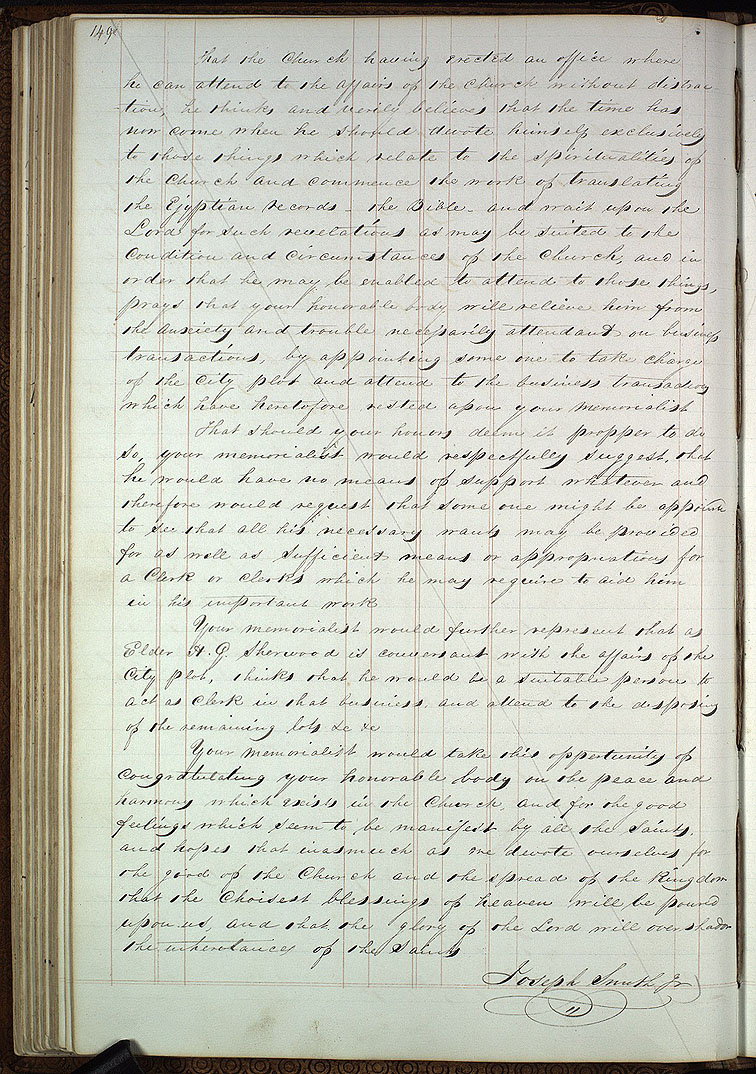 149
That the Church having erected an office where
he can attend to the affairs of the Church without distrac-
-tion, he thinks and verily believes that the time has
now come when he should devote himself exclusively
to those things which relate to the spiritualities of
the Church and commence the work of translating
the Egyptian records - the Bible - and wait upon the
Lord for such revelations as may be suited to the
condition and circumstances of the Church, and in
order that he may be enabled to attend to those things,
prays that your honorable body will relieve him from
the anxiety and trouble necessarily attendant on business
transactions, by appointing some one to take charge
of the city plot and attend to the business transactions
which have heretofore rested upon your memorialist
That should your honors deem it propper to do
so, your memorialist would respectfully suggest, that
he would have no means of support whatever and
therefore would request that some one might be appointd
to see that all his necessary wants may be provided
for as well as sufficient means or appropriations for
a Clerk or clerks which he may require to aid him
in his important work
Your memorialist would further represent that as
Elder H. G. Sherwood is conversant with the affairs of the
City plot, thinks that he would be a suitable person to
act as clerk in that business, and attend to the disposing
of the remaining lots &c &c
Your memorialist would take this opportunity of
congratulating your honorable body on the peace and
harmony which exists in the Church, and for the good
feelings which seem to be manifest by all the Saints,
and hopes that inasmuch as we devote ourselves for
the good of the Church and the spread of the Kingdom
that the choisest blessings of heaven will be poured
upon us, and that the glory of the Lord will overshadow
the inheritances of the Saints
Joseph Smith Jr